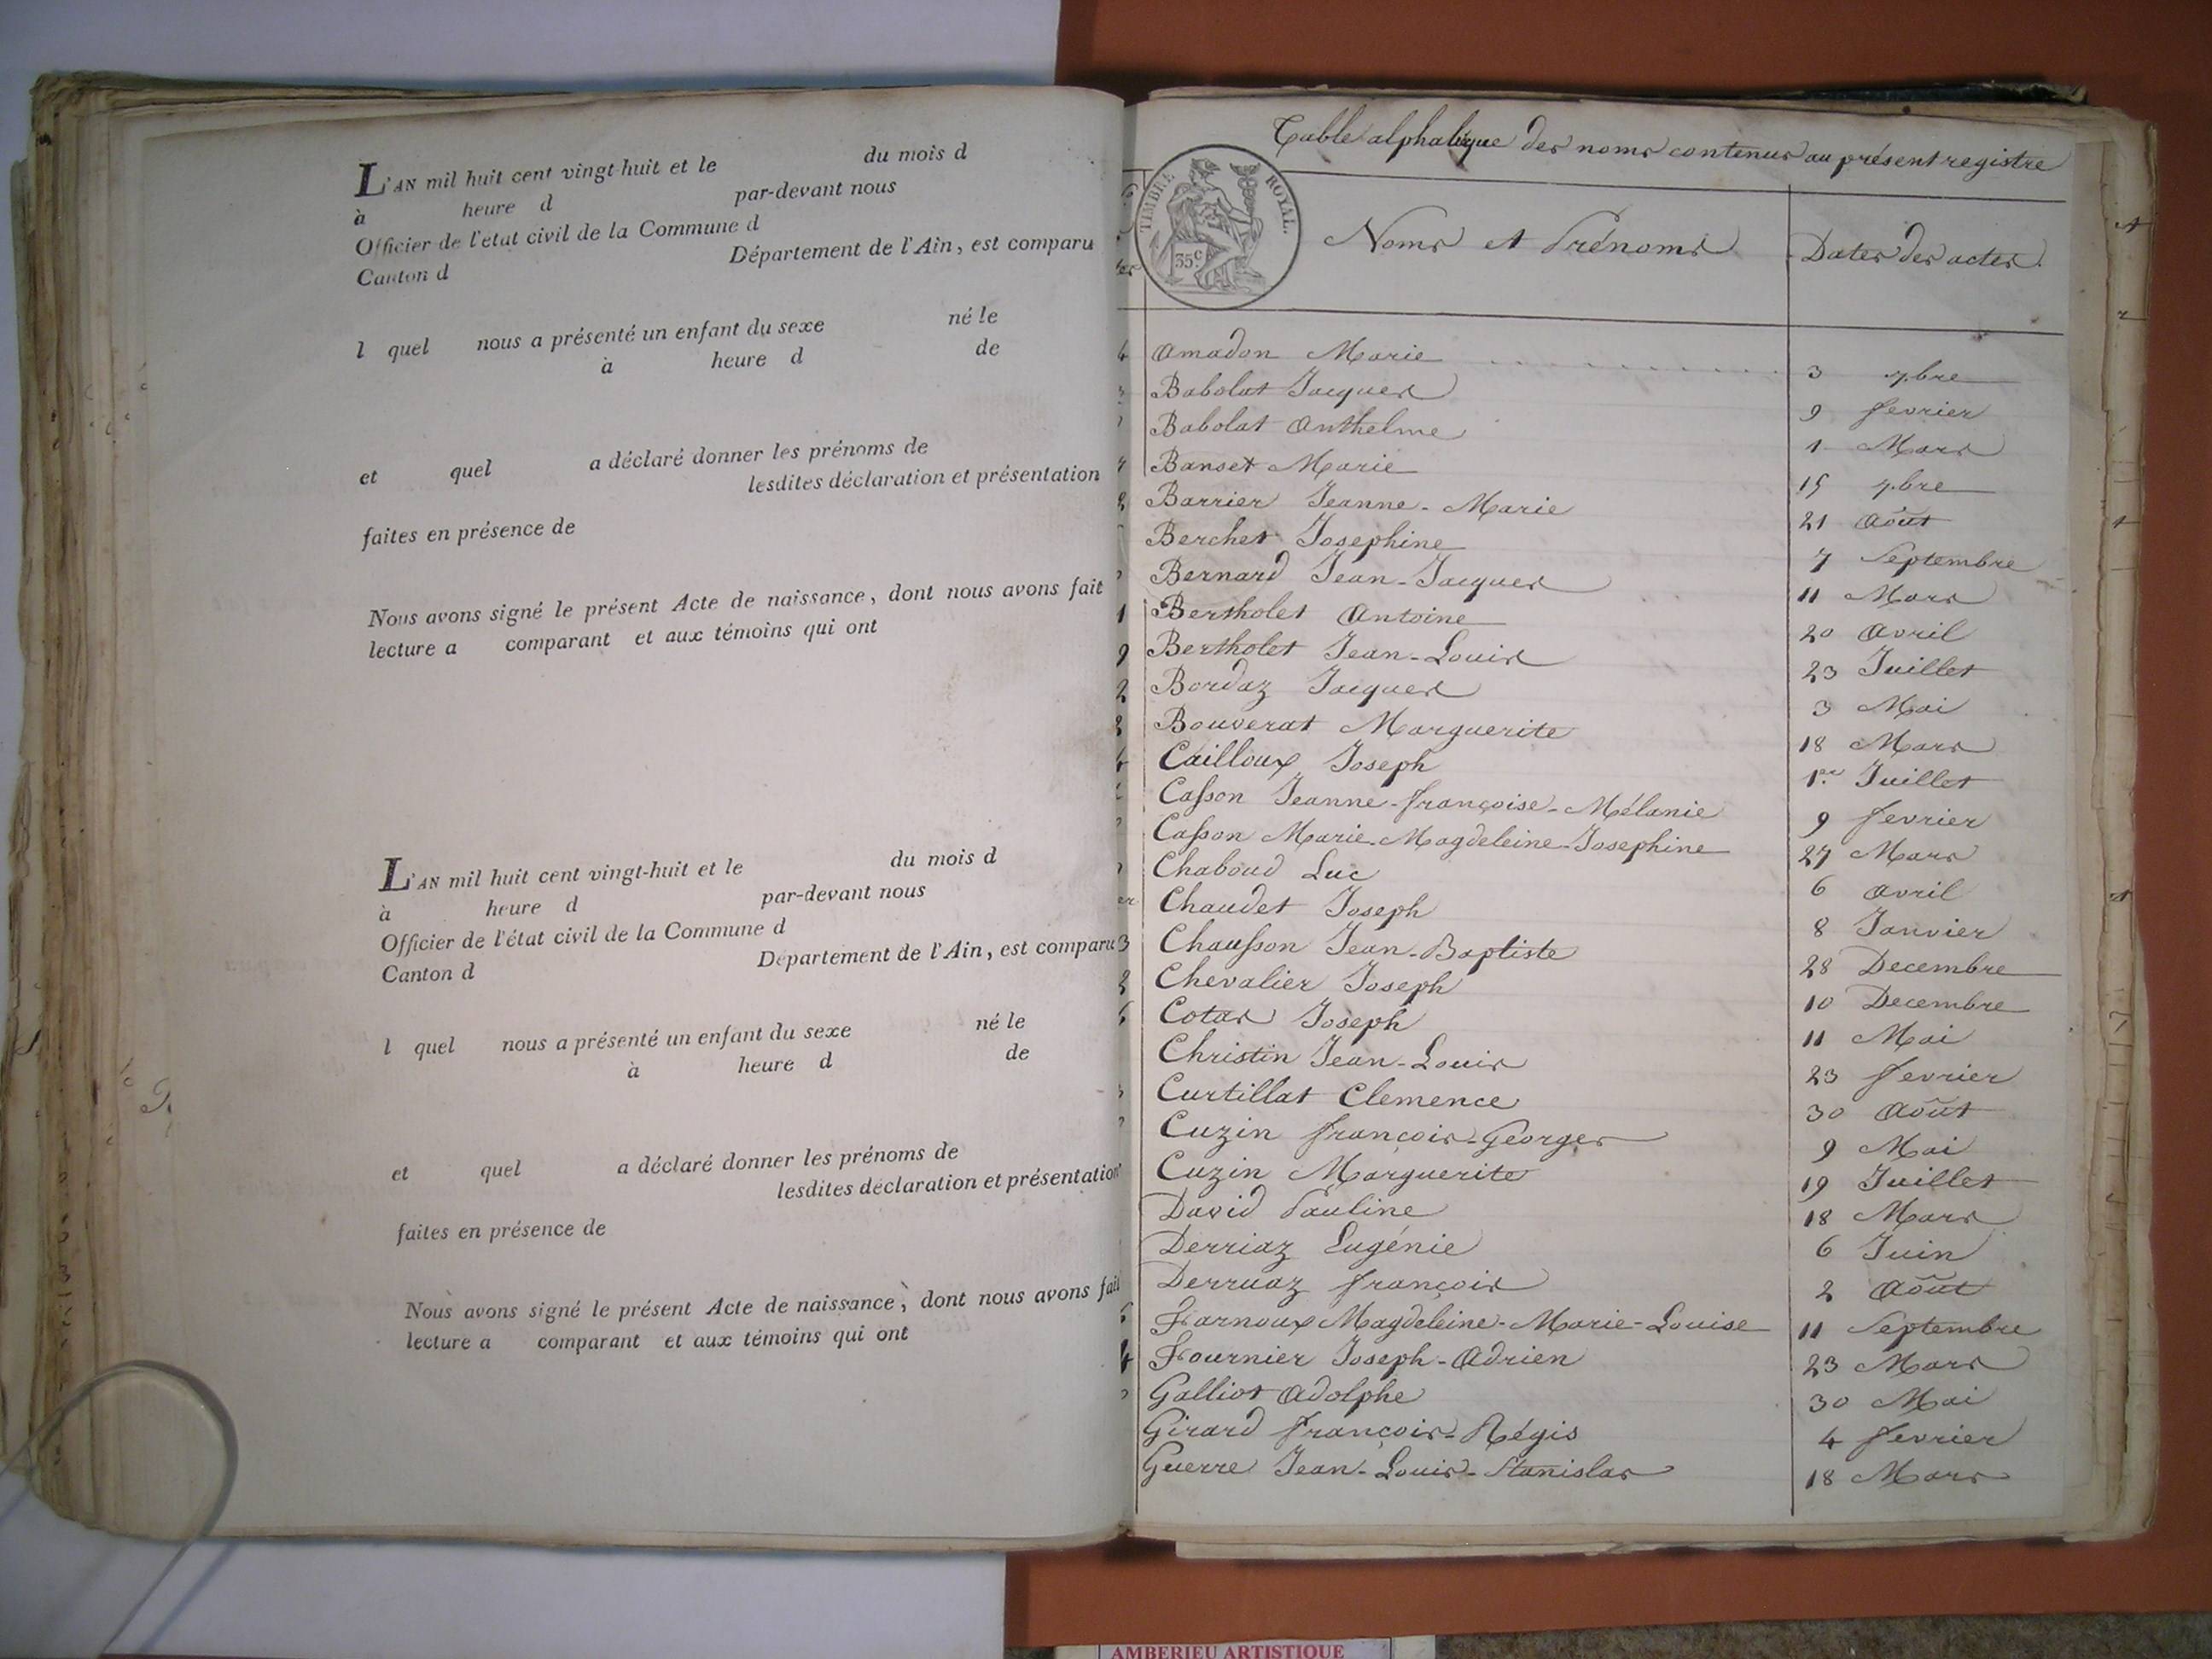 L'AN mil huit cent vingt-huit et le du mois d
à heure d par-devant nous
Officier de l'etat civil de la Commune d
Canton d Département de l'Ain, est comparu
l quel nous a présenté un enfant du sexe né le
à heure d de
et quel a déclaré donner les prénoms de
lesdites déclaration et présentation
faites en présence de
Nous avons signé le présent Acte de naissance, dont nous avons fait
lecture a comparant et aux témoins qui ont
L'AN mil huit cent vingt-huit et le du mois d
à heure d par-devant nous
Officier de l'état civil de la Commune d
Canton d Département de l'Ain, est comparu
l quel nous a présenté un enfant du sexe né le
à heure d de
et quel a déclaré donner les prénoms de
lesdites déclaration et présentation
faites en présence de
Nous avons signé le présent Acte de naissance, dont nous avons fait
lecture a comparant et aux témoins qui ont
Table alphabéque des noms contenus au présent registre
TIMBRE ROYAL.
35c
Noms et Prénoms Dates des actes.
Amadon Marie 3 7bre
Babolat Jacques 9 fevrier
Babolat Anthelme 1 Mars
Banset Marie 15 7bre
Barrier Jeanne-Marie 21 Août
Berchet Josephine 7 Septembre
Bernard Jean-Jacques 11 Mars
Bertholet Antoine 20 Avril
Bertholet Jean-Louis 23 Juillet
Bordaz Jacques 3 Mai
Bouverat Marguerite 18 Mars
Cailloux Joseph 1er Juillet
Casson Jeanne-françoise-Mélanie 9 fevrier
Casson Marie-Magdeleine-Josephine 27 Mars
Chaboud Luc 6 Avril
Chaudet Joseph 8 Janvier
Chausson Jean-Baptiste 28 Decembre
Chevalier Joseph 10 Decembre
Cotas Joseph 11 Mai
Christin Jean-Louis 23 fevrier
Curtillat Clemence 30 Août
Cuzin françois-Georges 9 Mai
Cuzin Marguerite 19 Juillet
David Pauline 18 Mars
Derriaz Eugénie 6 Juin
Derruaz françois 2 Août
Farnoux Magdeleine-Marie-Louise 11 Septembre
Fournier Joseph-Adrien 23 Mars
Galliot Adolphe 30 Mai
Girard françois-Régis 4 fevrier
Guerre Jean-Louis-Stanislas 18 Mars
AMBERIEU ARTISTIQUE